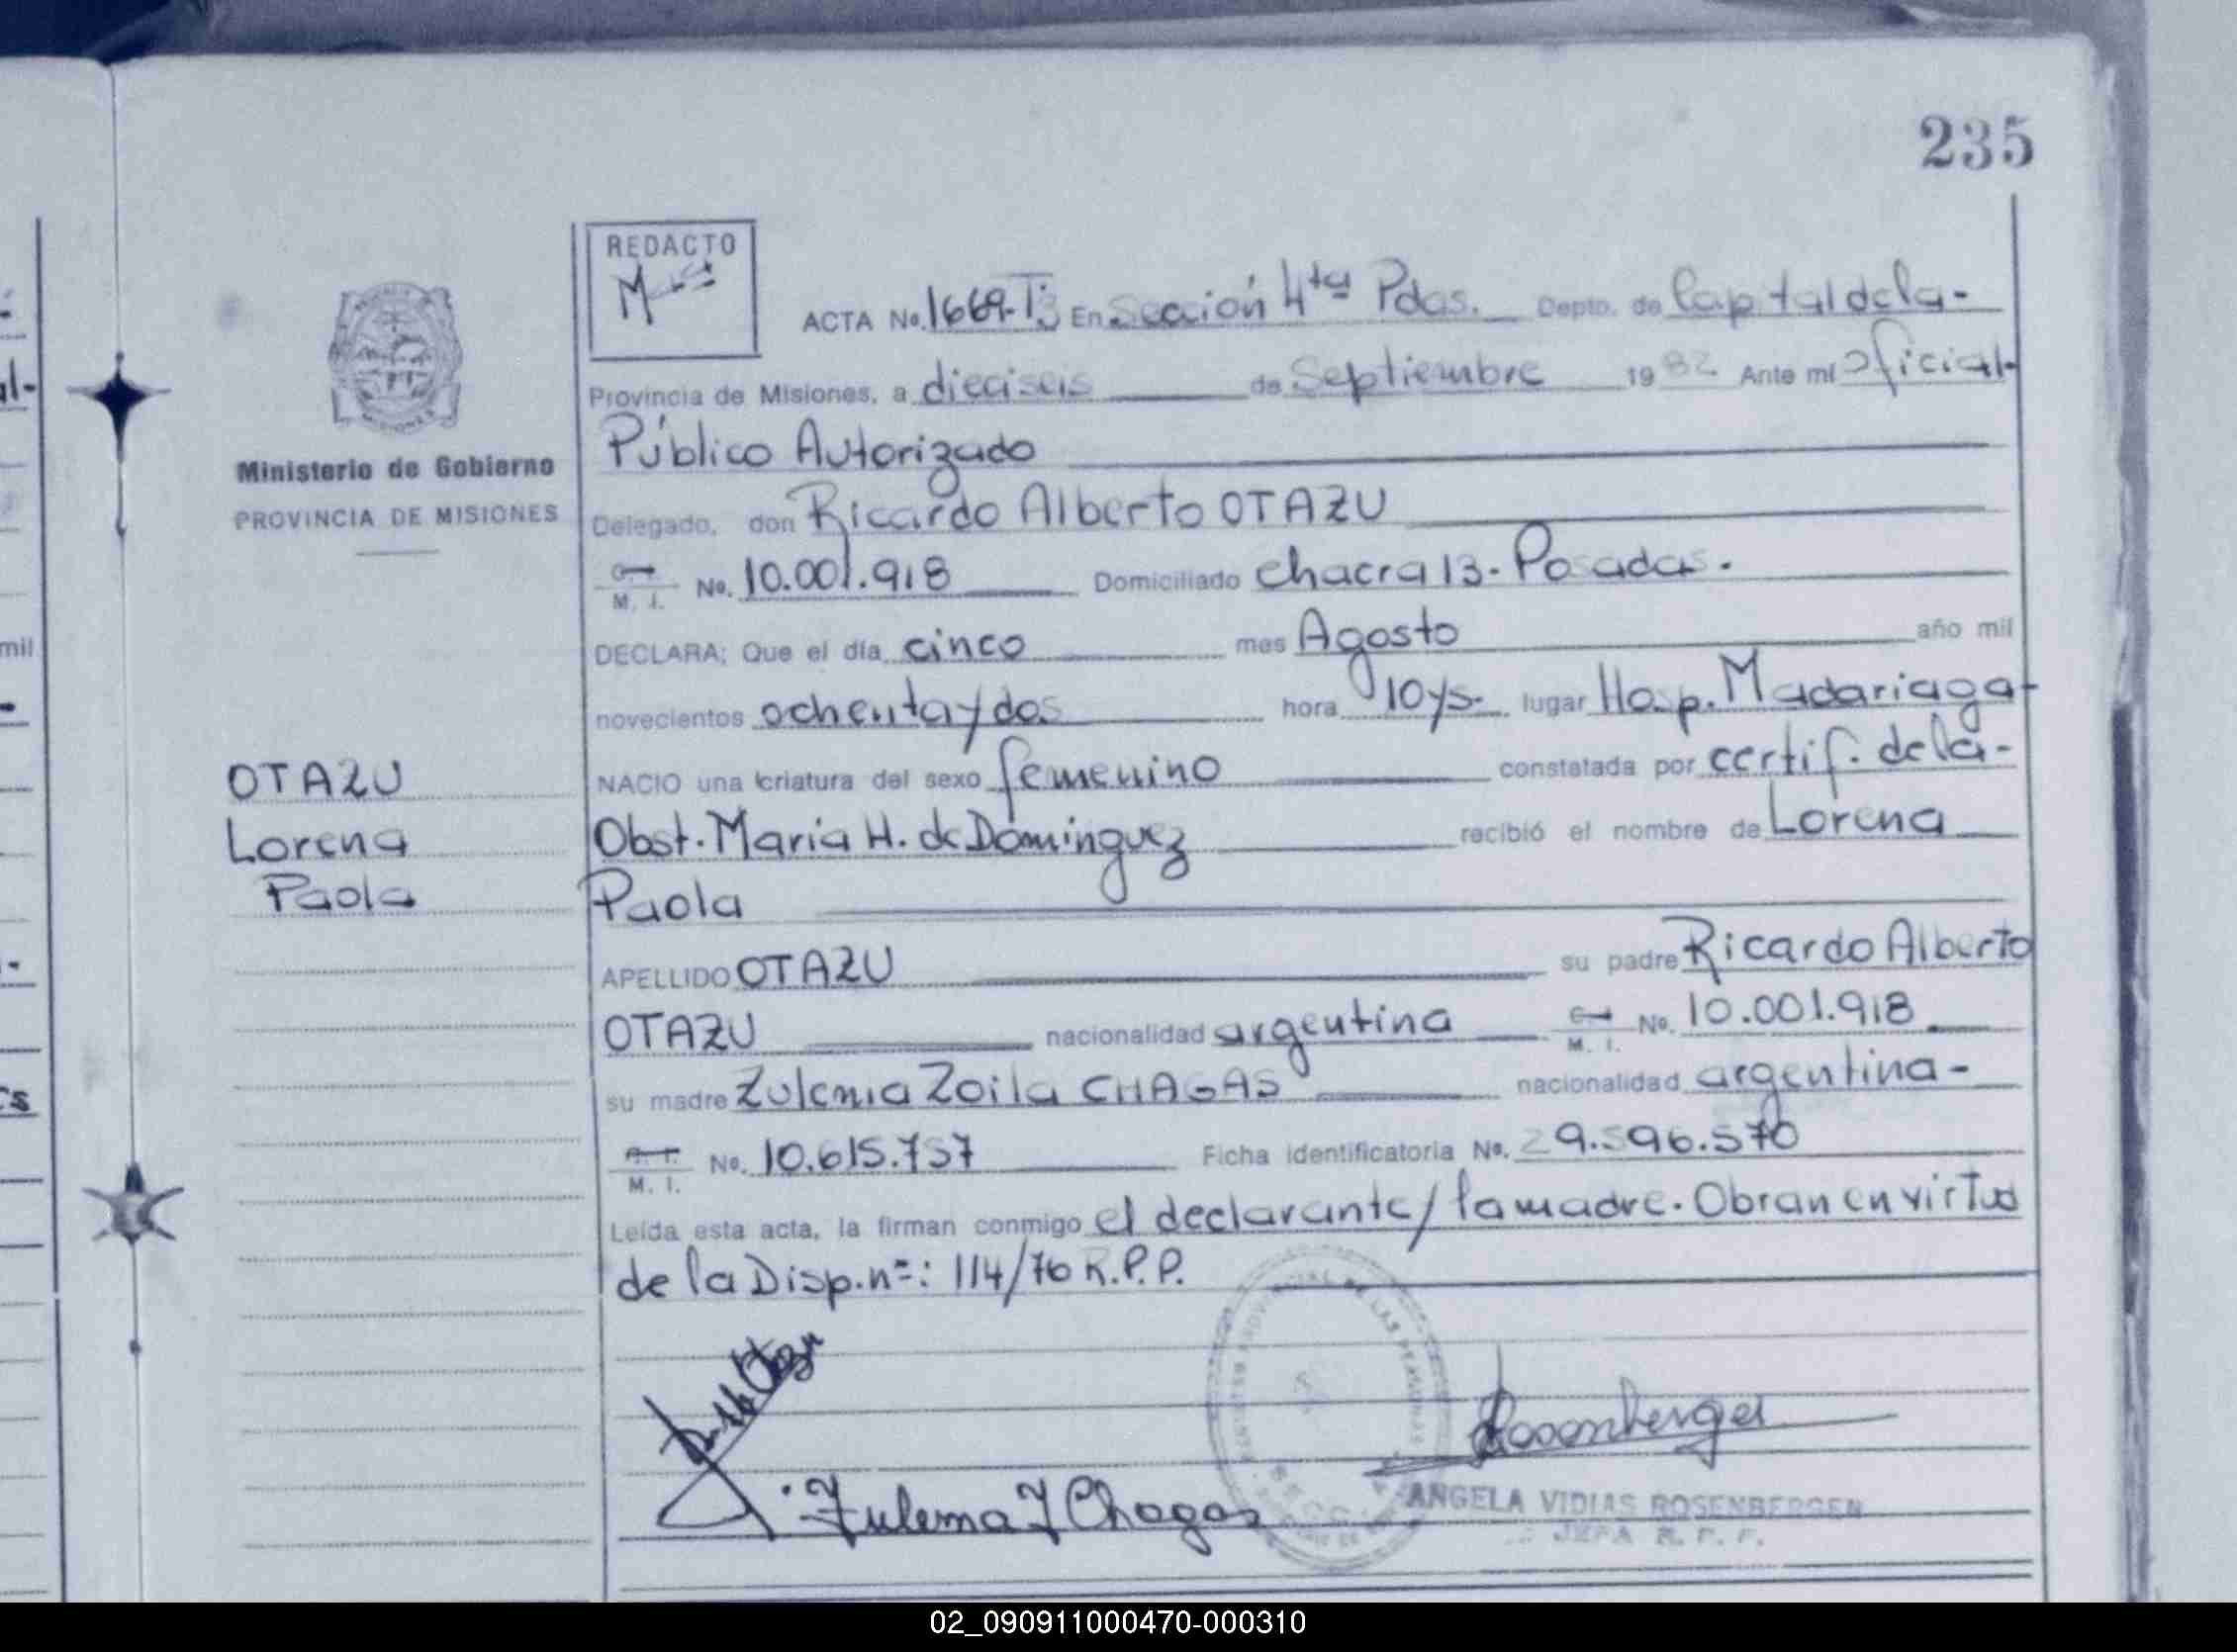 235
REDACTO
ACTA No. 1669-T3 En Sección 4ta Pdas. Depto. de Capital de la-
Provincia de Misiones, a dieciseis de Septiembre 1982 Ante mí Oficial-
Público Autorizado
Delegado, don Ricardo Alberto OTAZU
M. I. No. 10.001.918 Domiciliado chacra 13- Posadas.
DECLARA; Que el día cinco mes Agosto año mil
novecientos ochenta y dos hora 10 y 5. lugar Hosp. Madariaga-
NACIO una criatura del sexo femenino constatada por certif. de la-
Obst. Maria H. de Dominguez recibió el nombre de Lorena
Paola
APELLIDO OTAZU su padre Ricardo Alberto
OTAZU nacionalidad argentina M. I. No. 10.001.918
su madre Zulemia Zoila CHAGAS nacionalidad argentina-
M. I. No. 10.615.757 Ficha identificatoria No. 29.596.570
Leída esta acta, la firman conmigo el declarante/la madre. Obran en virtud
de la Disp. nº: 114/76 R.P.P.
Zulema Z Chagas
Rosenbergen
ANGELA VIDIAS ROSENBERGEN
JEFA R. P. P.
Ministerio de Gobierno
PROVINCIA DE MISIONES
OTAZU
Lorena
Paola
mil
02_090911000470-000310